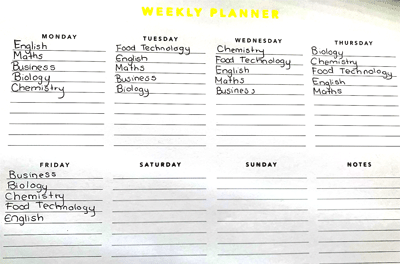 WEEKLY PLANNER
MONDAY
English
Maths
Business
Biology
Chemistry
TUESDAY
Food Technology
English
Maths
Business
Biology
WEDNESDAY
Chemistry
Food Technology
English
Maths
Business
THURSDAY
Biology
Chemistry
Food Technology
English
Maths
FRIDAY
Business
Biology
Chemistry
Food Technology
English
SATURDAY
SUNDAY
NOTES